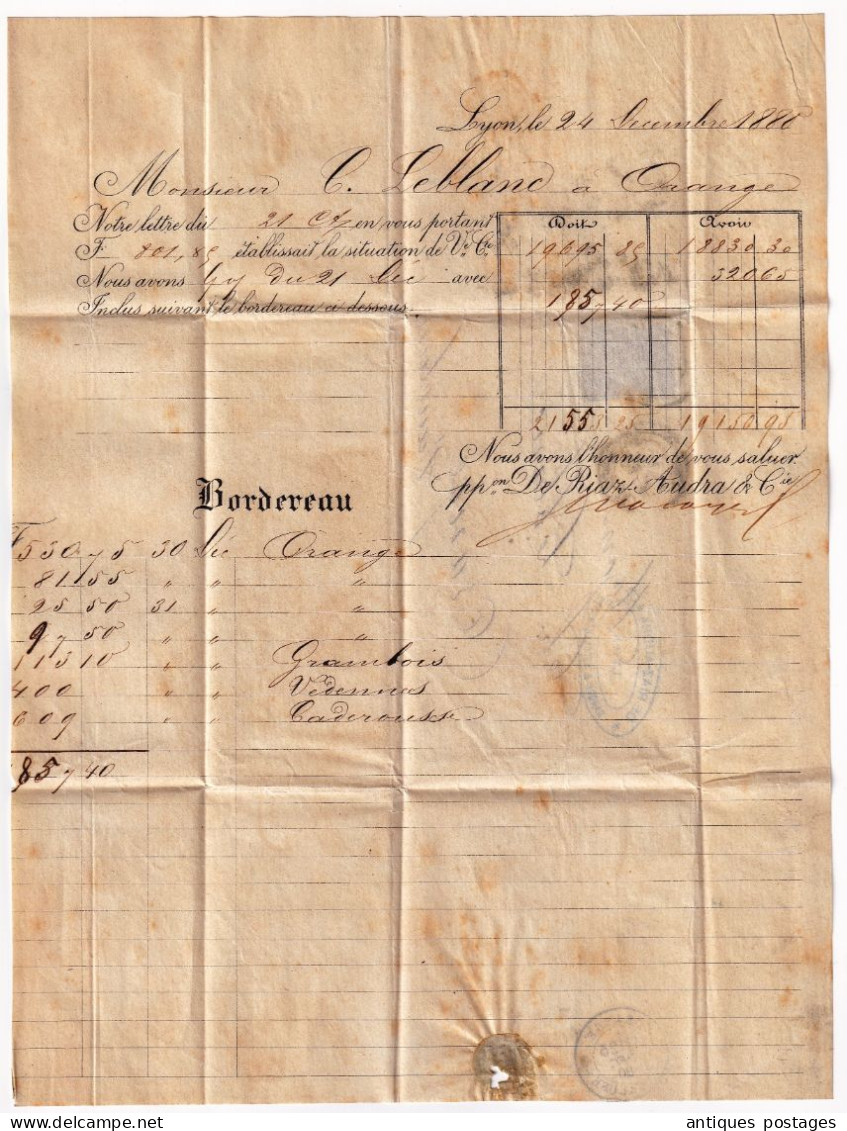 Lyon, le 24 Decembre 1886
Monsieur C. Leblanc à Orange
Notre lettre du 21 Ct en vous portant
F 801,85 établissait la situation de V. Cte
Nous avons du 21 Dec avec
Inclus suivant le bordereau ci dessous.
Doit Avoir
19695 85 18830 30
320 65
1857 40
21553 25 19150 95
Nous avons l'honneur de vous saluer.
ppon De Riaz, Audra & Cie
Bordereau
F 530 75 30 Dec Orange
81 55 " " "
25 50 31 " "
97 50 " " "
113 10 " " Grambois
400 " " Védennes
609 " " Caderousse
1857 40
antiques postages